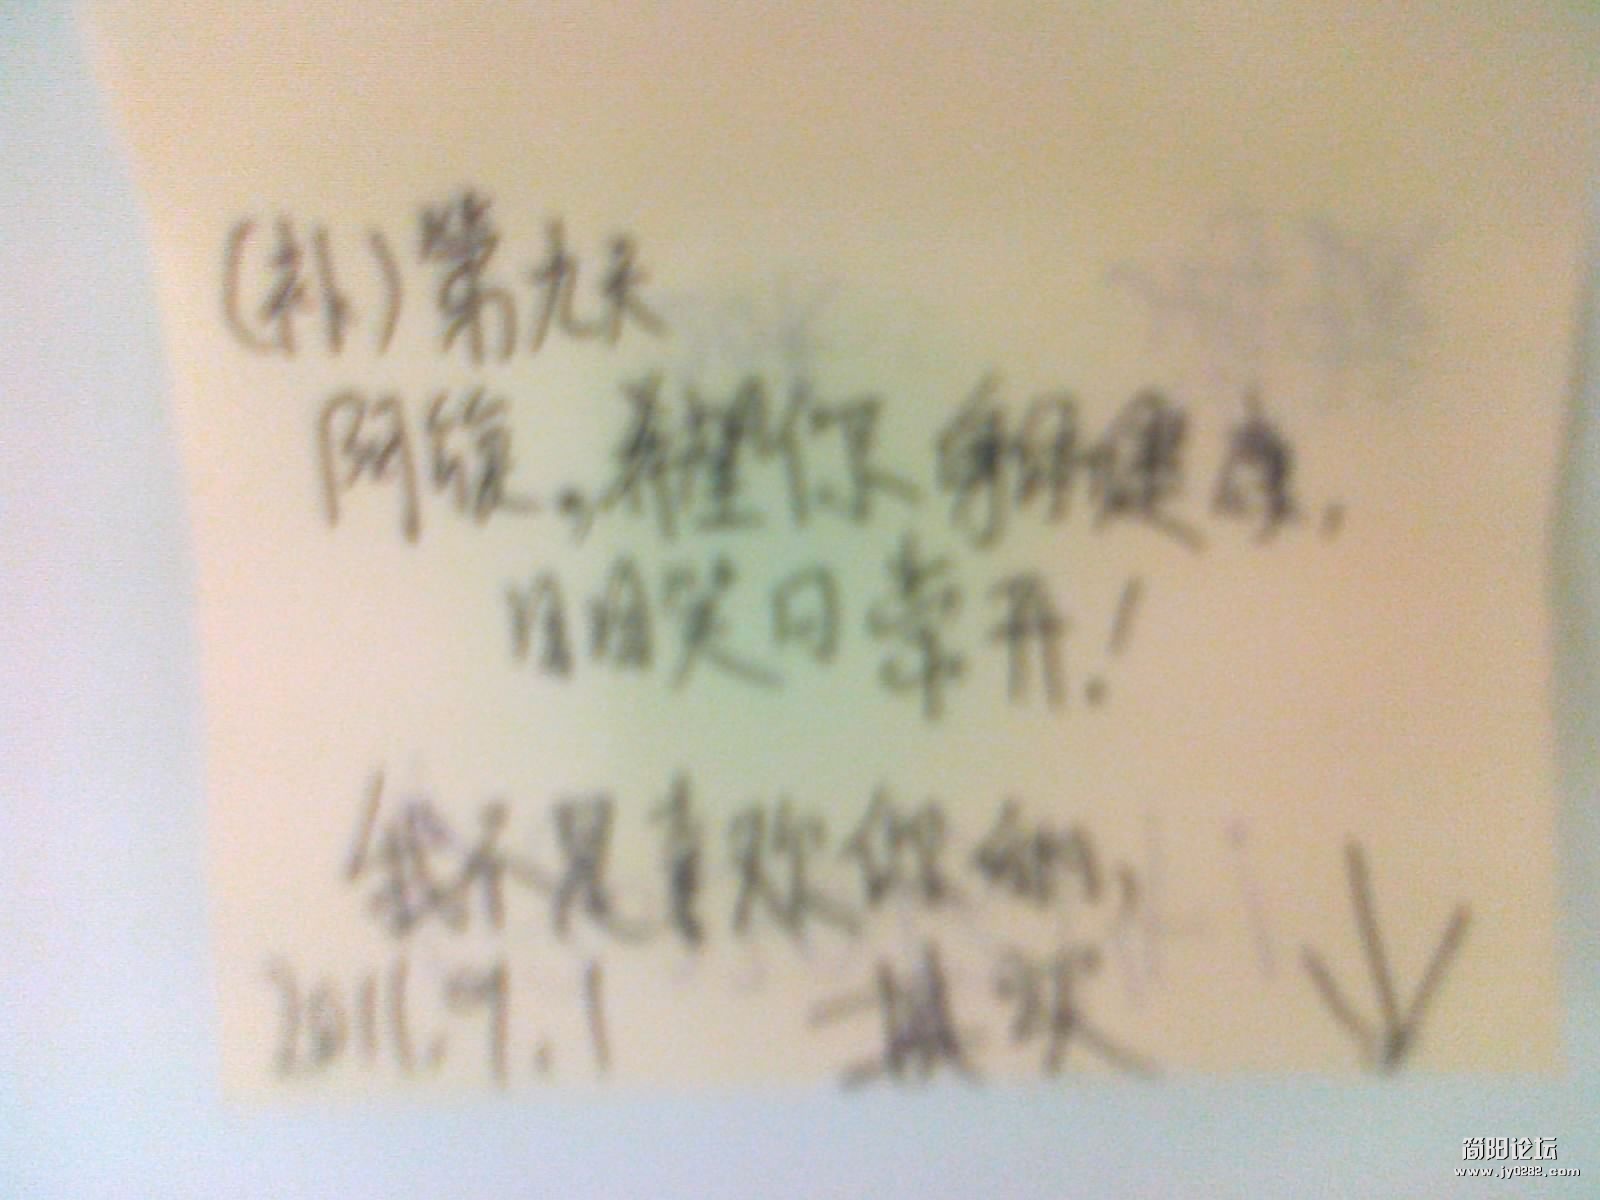 (补)第九天
阿俊,希望你身体健康,
日日笑口常开!
我是喜欢你的,
2011.7.1
简阳论坛
www.jy0282.com